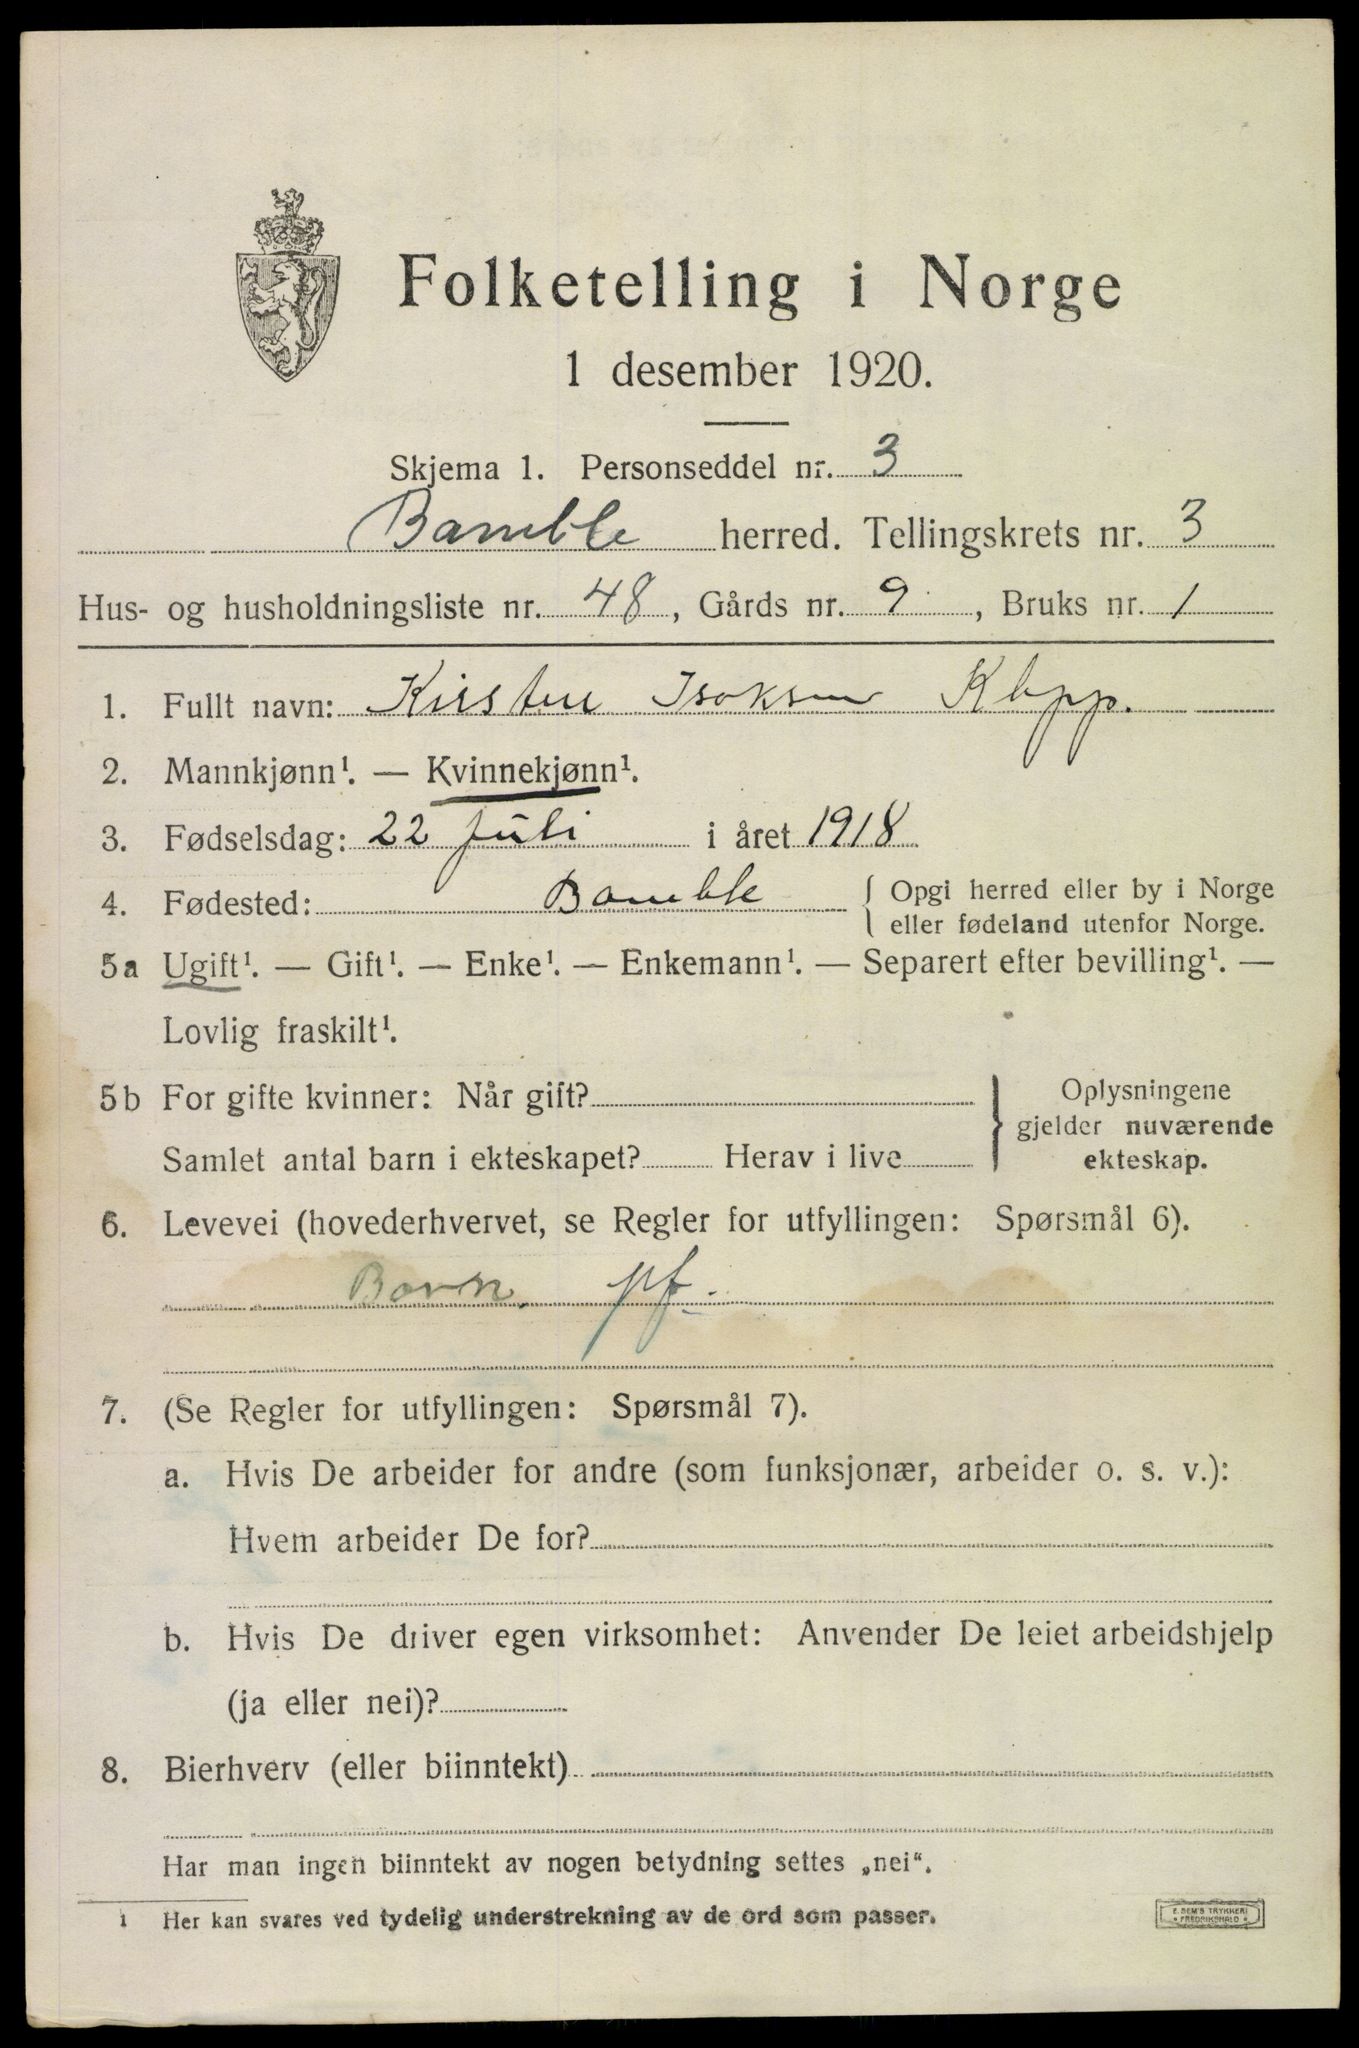 Folketelling i Norge
1 desember 1920.
Skjema 1. Personseddel nr. 3
Bamble herred. Tellingskrets nr. 3
Hus- og husholdningsliste nr. 48, Gårds nr. 9, Bruks nr. 1
1. Fullt navn: Kirsten Isaksen Klopp.
2. Mannkjønn¹. — Kvinnekjønn¹.
3. Fødselsdag: 22 juli i året 1918
4. Fødested: Bamble { Opgi herred eller by i Norge
eller fødeland utenfor Norge.
5a Ugift¹. — Gift¹. — Enke¹. — Enkemann¹. — Separert efter bevilling¹. —
Lovlig fraskilt¹.
5b For gifte kvinner: Når gift? } Oplysningene
gjelder nuværende
Samlet antal barn i ekteskapet? Herav i live ekteskap.
6. Levevei (hovederhvervet, se Regler for utfyllingen: Spørsmål 6).
Barn. pf.
7. (Se Regler for utfyllingen: Spørsmål 7).
a. Hvis De arbeider for andre (som funksjonær, arbeider o. s. v.):
Hvem arbeider De for?
b. Hvis De driver egen virksomhet: Anvender De leiet arbeidshjelp
(ja eller nei)?
8. Bierhverv (eller biinntekt)
Har man ingen biinntekt av nogen betydning settes „nei“.
1 Her kan svares ved tydelig understrekning av de ord som passer.
E. SEM'S TRYKKERI
FREDRIKSHALD